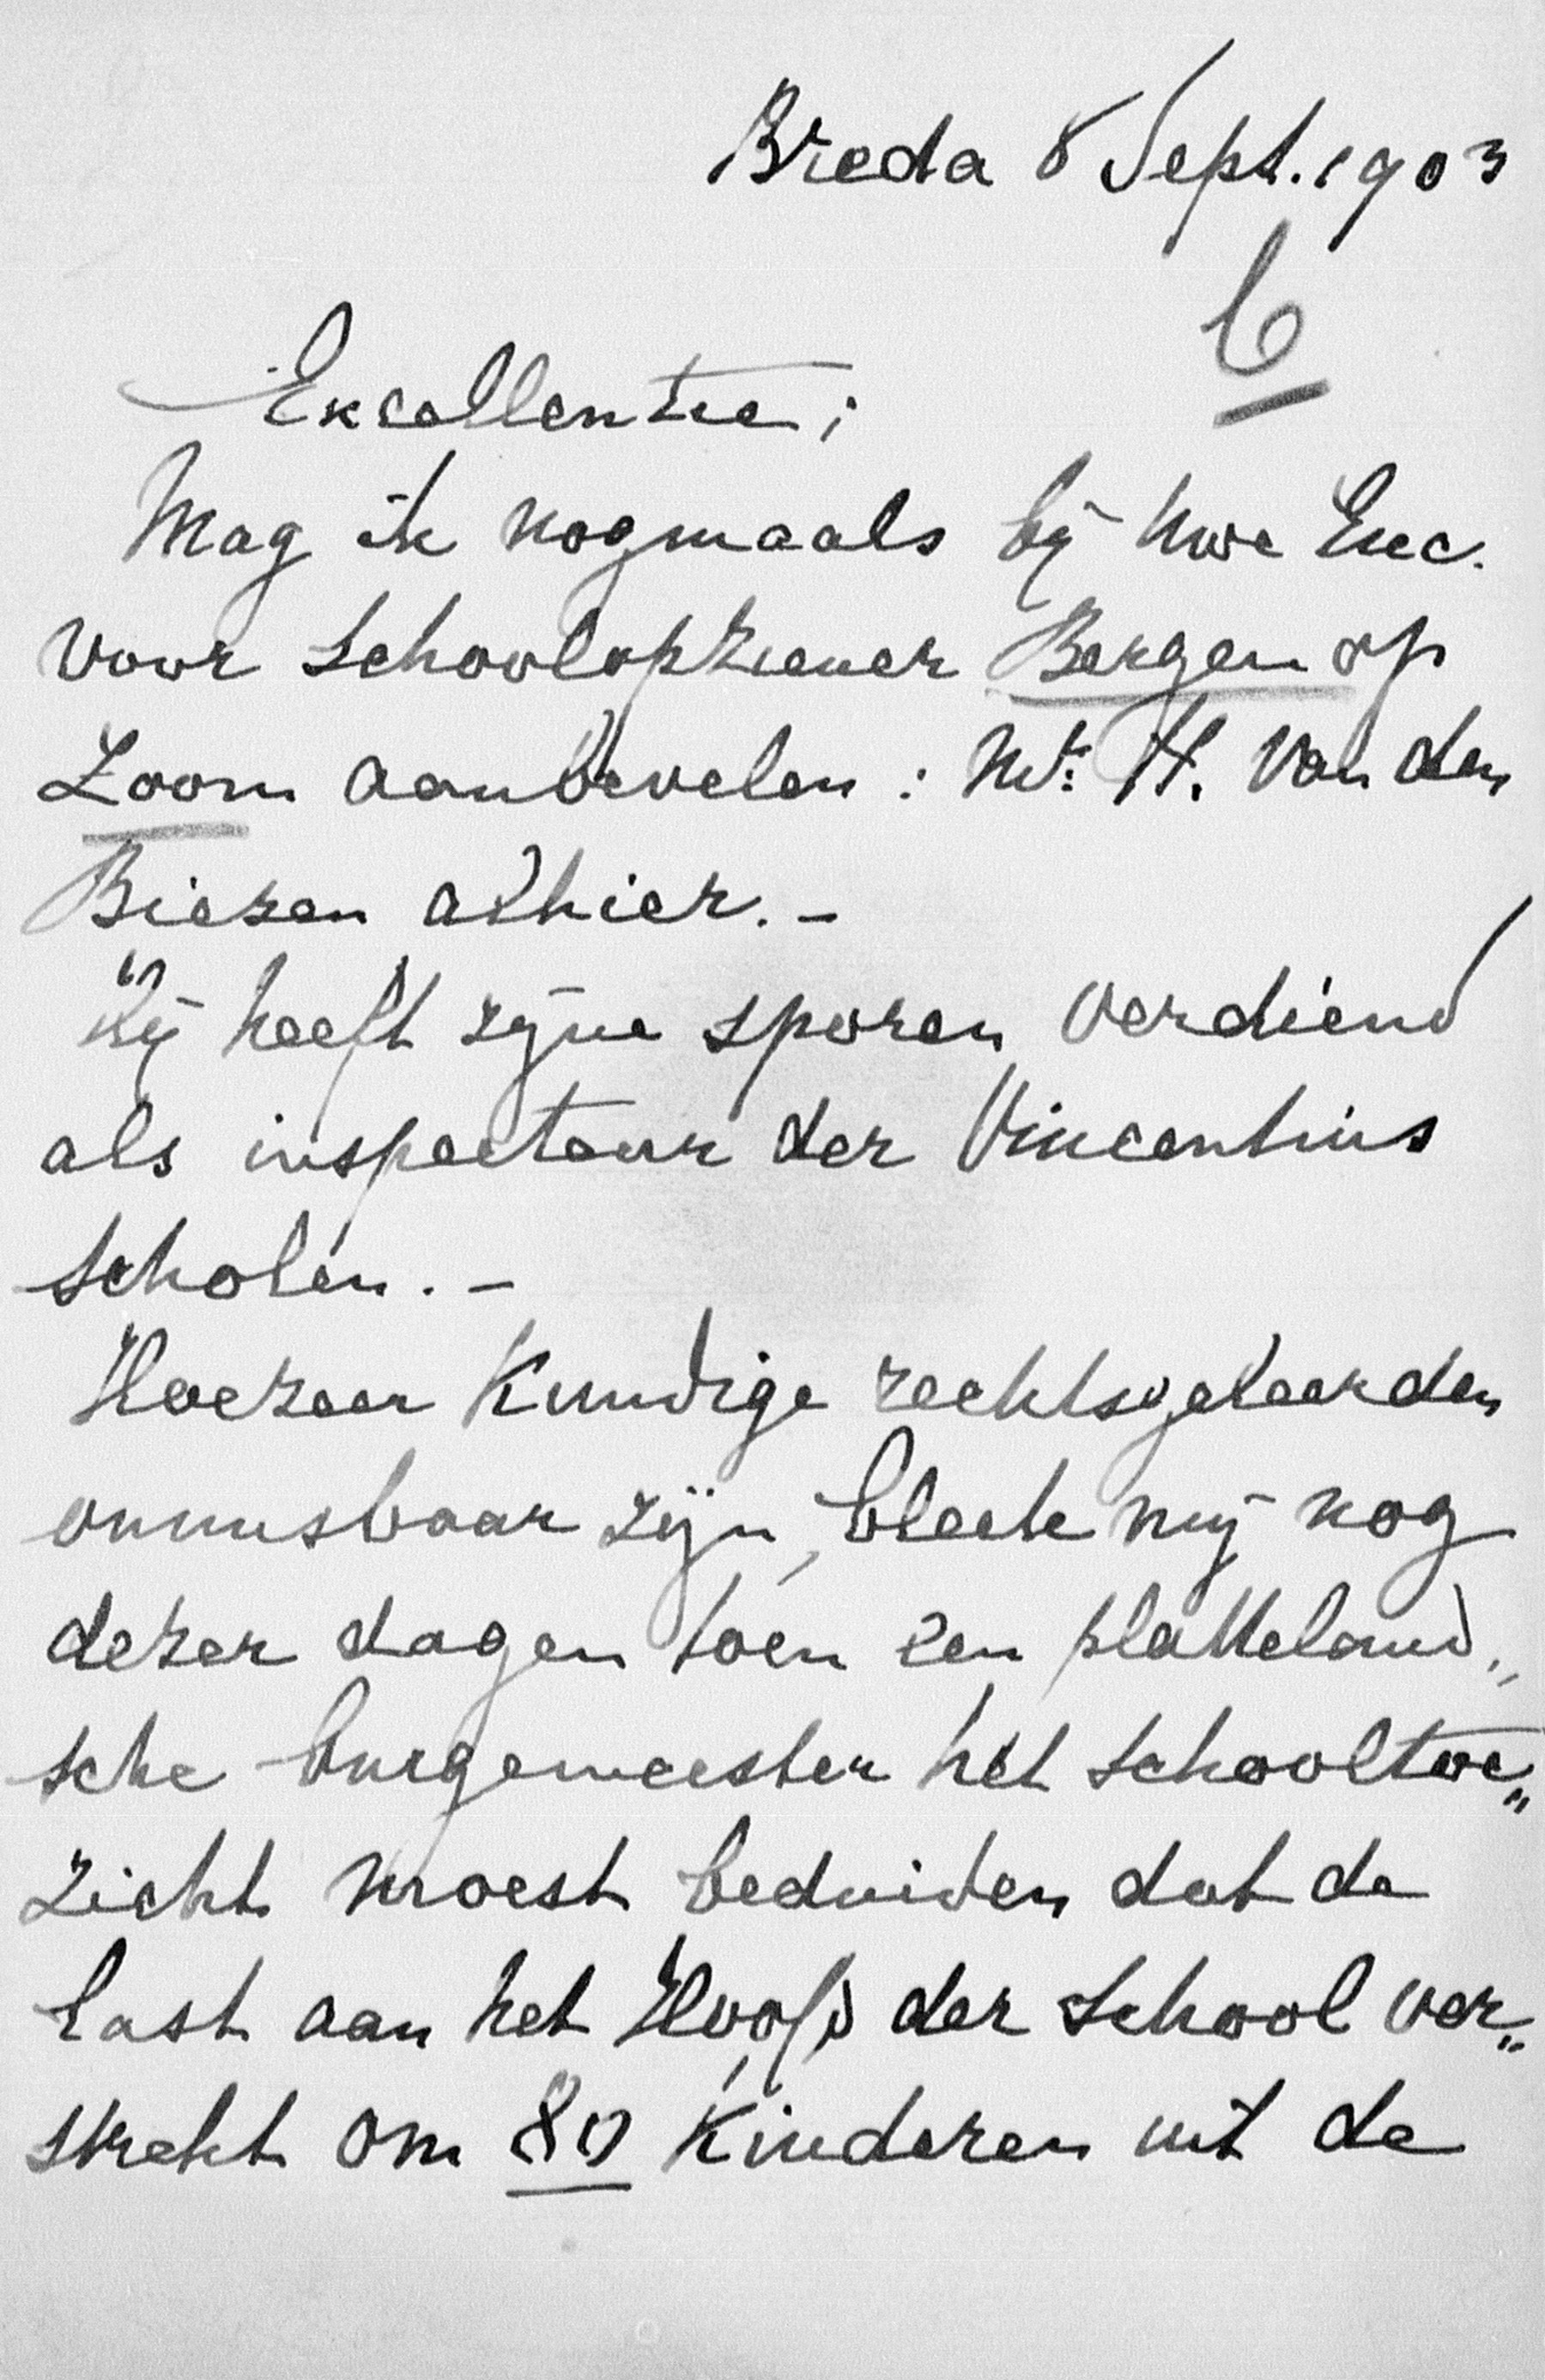 Breda 8 Sept. 1903
6
Excellentie;
Mag ik nogmaals bij Uwe Exc.
voor Schoolopziener Bergen op
Zoom aanbevelen: Mr. H. van den
Biezen alhier. -
Hij heeft zijne sporen verdiend
als inspecteur der Vincentius
scholen. -
Hoezeer kundige rechtsgeleerden
onmisbaar zijn, bleek mij nog
dezer dagen toen een platteland„
sche burgemeester het schooltoe„
zicht moest beduiden dat de
last aan het Hoofd der School ver„
strekt om 80 kinderen uit de